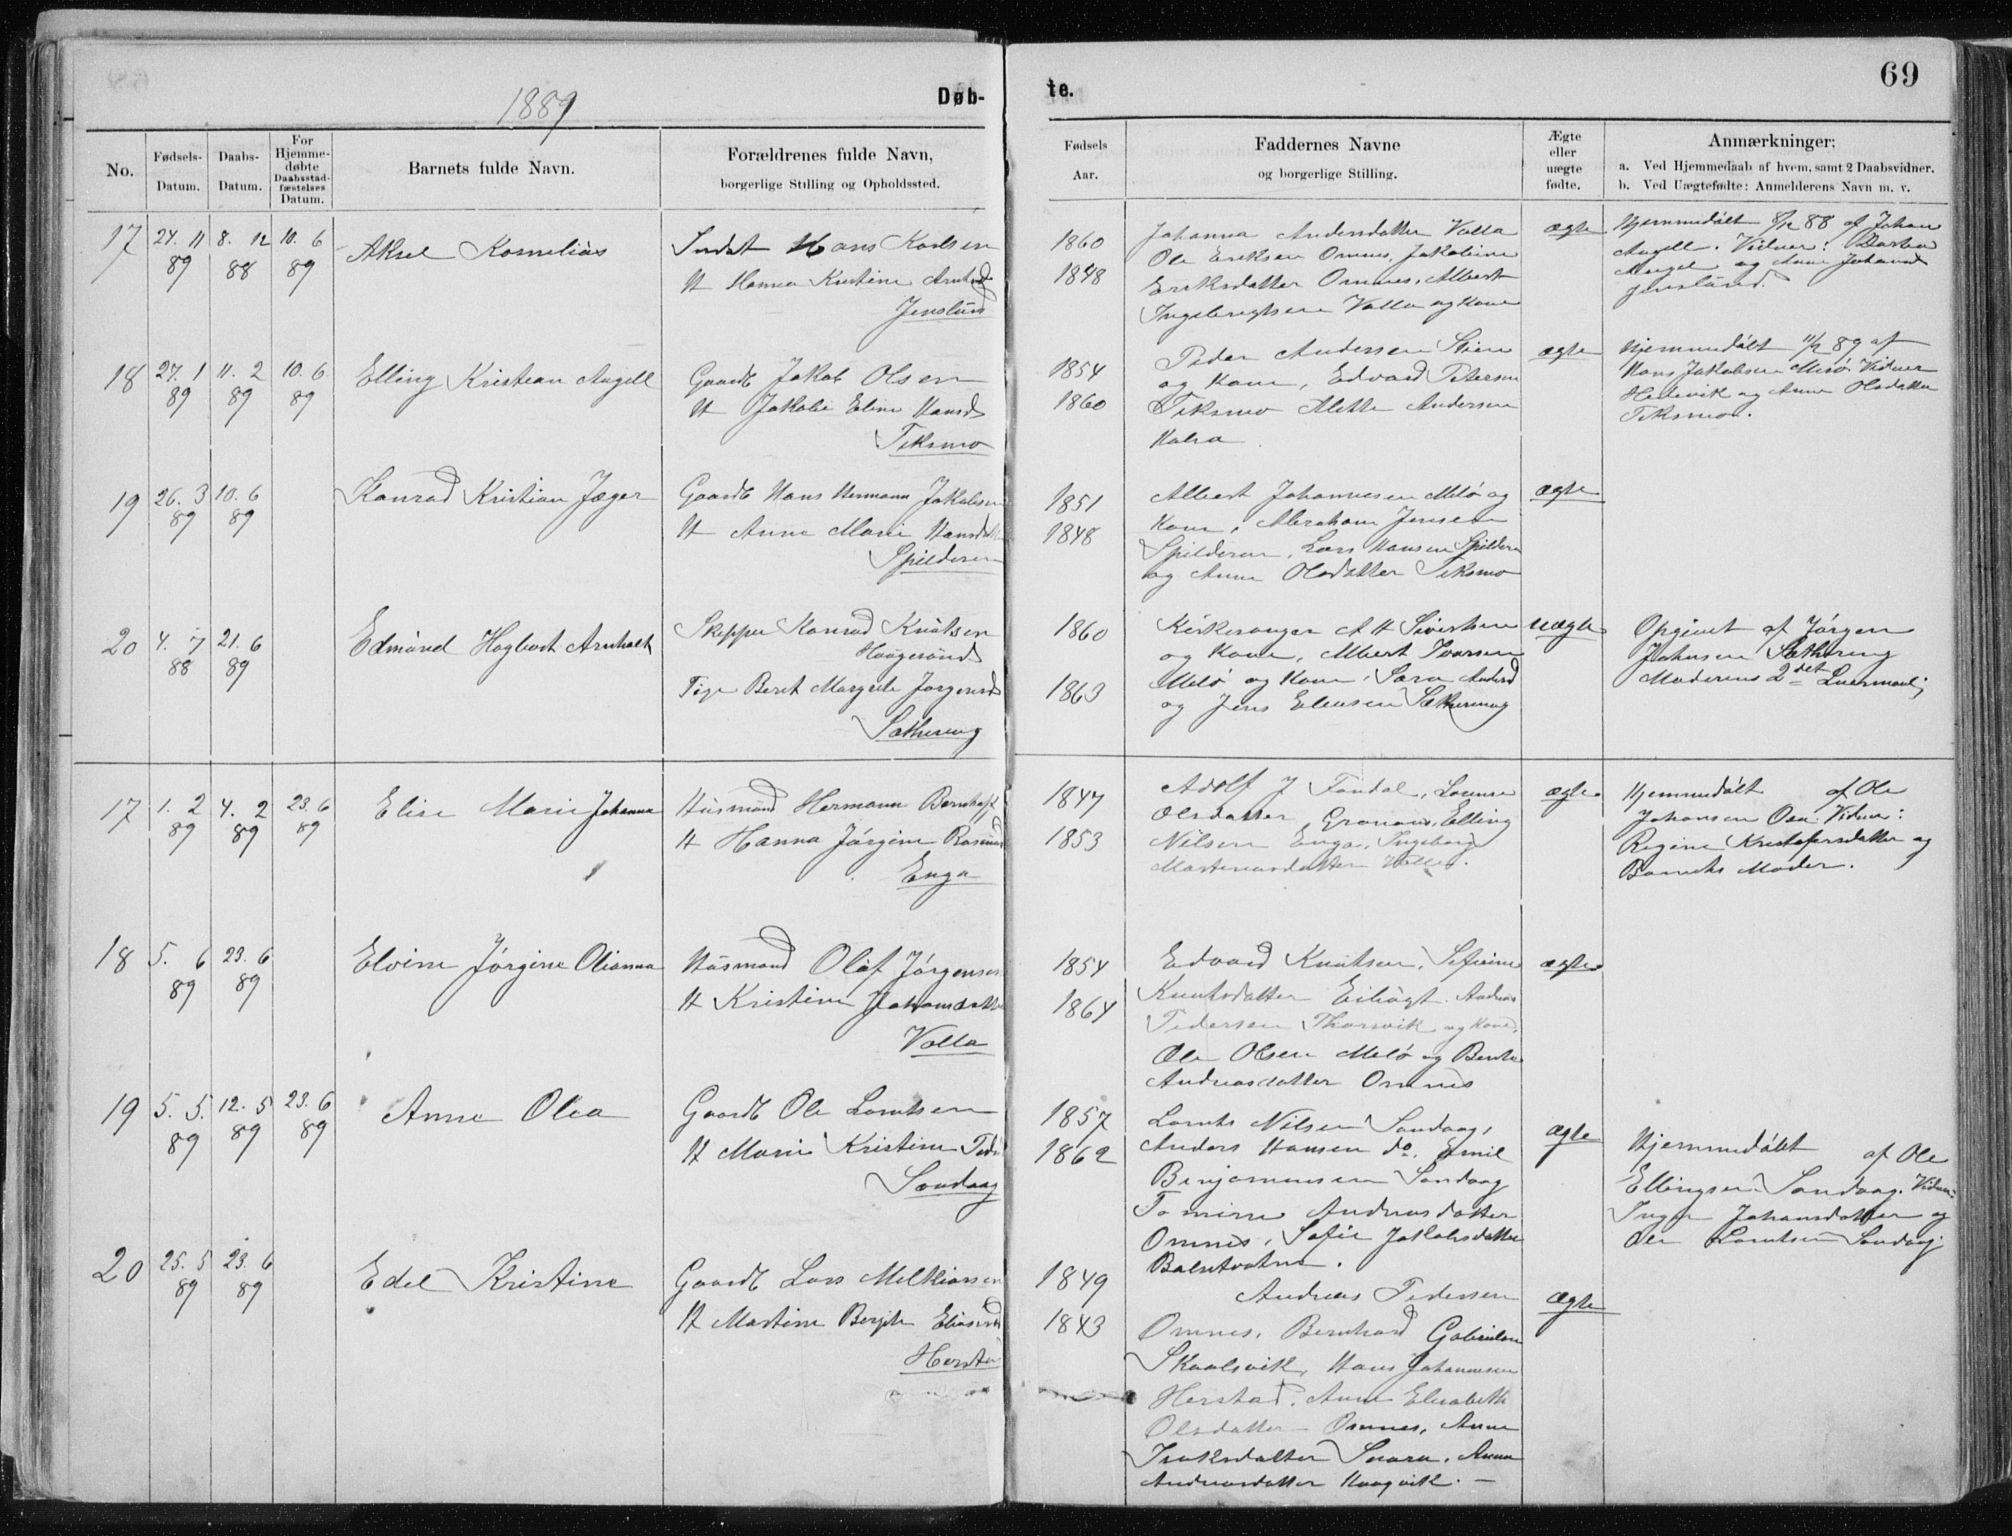 69
1889
Døb-
te.
No.
Fødsels-
Datum.
Daabs-
Datum.
For
Hjemme-
døbte
Daabsstad-
fæstelses
Datum.
Barnets fulde Navn.
Forældrenes fulde Navn,
borgerlige Stilling og Opholdssted.
Fødsels
Aar.
Faddernes Navne
og borgerlige Stilling.
Ægte
eller
uægte
fødte.
Anmærkninger:
a. Ved Hjemmedaab af hvem, samt 2 Daabsvidner.
b. Ved Uægtefødte: Anmelderens Navn m. v.
17
27. 11
89
8. 12
88
10. 6
89
Aksel Kornelius
Indst Hans Karlsen
H Hanna Kristine
Jenslund
1860
1848
Johanna Andersdatter Valla
Ole Eriksen Omnes, Jakobine
Eriksdatter Omnes, Albert
Ingebrigtsen Valla og Kone
ægte
Hjemmedøbt 8/12 88 af Johan
Angell. Vidner:
Angel og Anne
Jenslund.
18
27. 1
89
11. 2
89
10. 6
89
Elling Kristian Angell
Gaardb Jakob Olsen
H Jakobie Eline Hansd
Teksmo
1854
1860
Peder Andersen Stien
og Kone, Edvard Petersen
Teksmo Alette Andersen
Kalra
ægte
Hjemmedøbt 11/2 89 af
Hans Jakobsen Meløi Vidner
og Anne Olsdatter
Teksmo.
19
26. 3
89
10. 6
89
Konrad Kristian Jæger
Gaardb Hans Hermann Jakobsen
H Anne Marie Hansd
Spilderen
1851
1848
Albert Johannesen Melø og
Kone, Abraham Jensen
Spilderen, Lars Hansen Spilderen
og Anne Olsdatter Teksmo
ægte
20
4. 7
88
21. 6
89
Edmund Hagbart Arnholt
Skipper Konrad Knutsen
Haugesund
Pige Beret Margrete Jørgensd
Sæthereng
1860
1863
Kirkesanger A H Sivertsen
og Kone, Albert Ivarsen
Melø og Kone, Sara Andersd
og Jens Elensen Sæthereng
uægte
Opgivet af Jørgen
Johnsen Sæthereng
Moderens 2det Leiermaal
17
1. 2
89
4. 2
89
23. 6
89
Elise Marie Johanna
Husmand Hermann Bernhoft
H Hanna Jørgine
Enga
1847
1853
Adolf J Fondal, Lovise
Olsdatter Grønaas, Elling
Nilsen Enga, Ingeborg
Mortensdatter
ægte
Hjemmedøbt af Ole
Johansen Vidner:
Regine Kristofersdatter og
Barnets Moder.
18
5. 6
89
23. 6
89
Elvine Jørgine Olianna
Husmand Olaf Jørgensen
H Kristine Johansdatter
Valla
1854
1864
Edvard Knutsen, Sefinine
Knutsdatter Andreas
Pedersen Thorsvik og Kone,
Ole Olsen Melø og Bente
Andreasdatter Omnes
ægte
19
5. 5.
89
12. 5
89
23. 6
89
Anne Olea
Gaardb Ole Lorntsen
H Marie Kristine
Sandaag
1857
1862
Lornts Nilsen Sandaag,
Anders Hansen do, Emil
Benjaminsen Sandaag
Tomine Andreasdatter
Omnes, Sofie Jakobsdatter
ægte
Hjemmedøbt af Ole
Ellingsen Sandaag. Vidner:
Inger Johansdatter og
Ole Lorntsen Sandaag
20
25. 5
89
23. 6
89
Edel Kristine
Gaardb Lars Melkiorsen
H Martine Bergite Eliasd
Herstad
1849
1843
Andreas Pedersen
Omnes, Bernhard Gabrielsen
Skaalsvik, Hans Johannesen
Herstad, Anne Elisabeth
Olsdatter Omnes, Anne
Isaksdatter Anna
Andreasdatter Haagvik. —
ægte